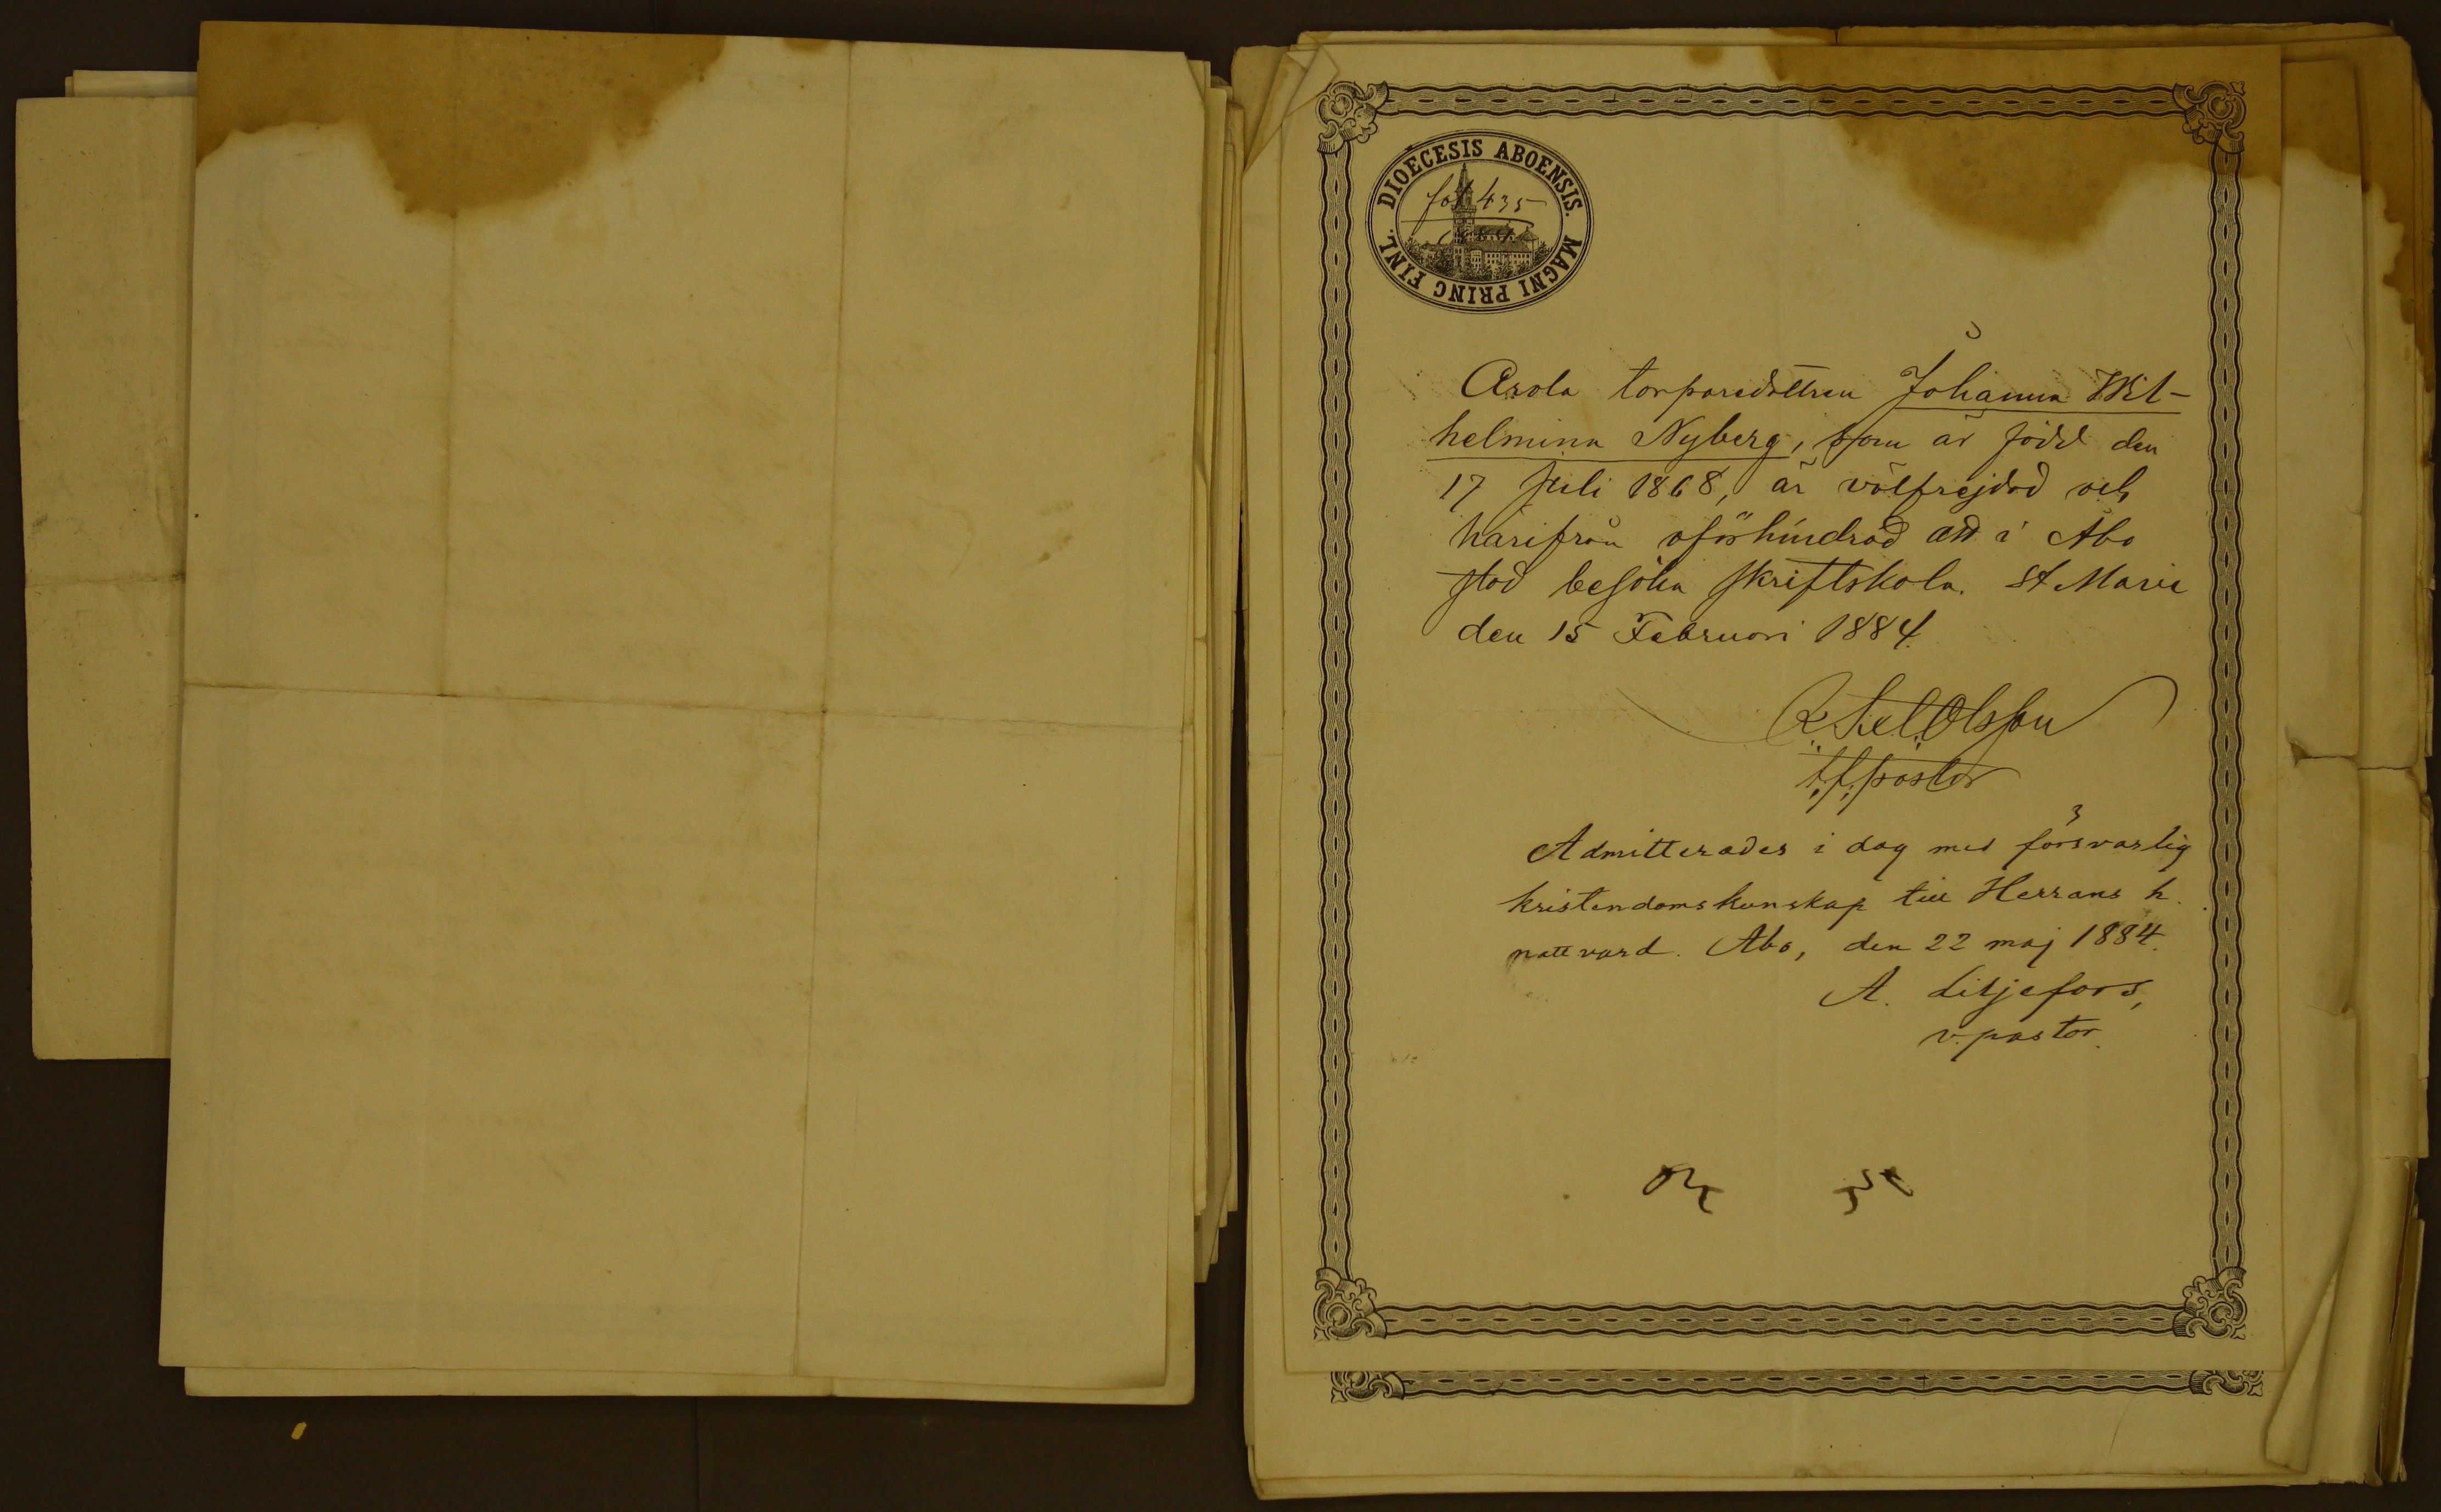 DIOECESIS ABOENSIS. MAGNI PRINC FINL.
fol 435
Arola torparedottren Johanna Wil-
helmina Nyberg, som är född den
17 Juli 1868, är välfrejdad och
härifrån oförhindrad att i Åbo
stad besöka skriftskola. St Marie
den 15 Februari 1884.
Olsson
t.f. pastor
3
Admitterades i dag med försvarlig
kristendomskunskap till Herrans h.
nattvard. Åbo, den 22 maj 1884.
A. Liljefors,
v. pastor.